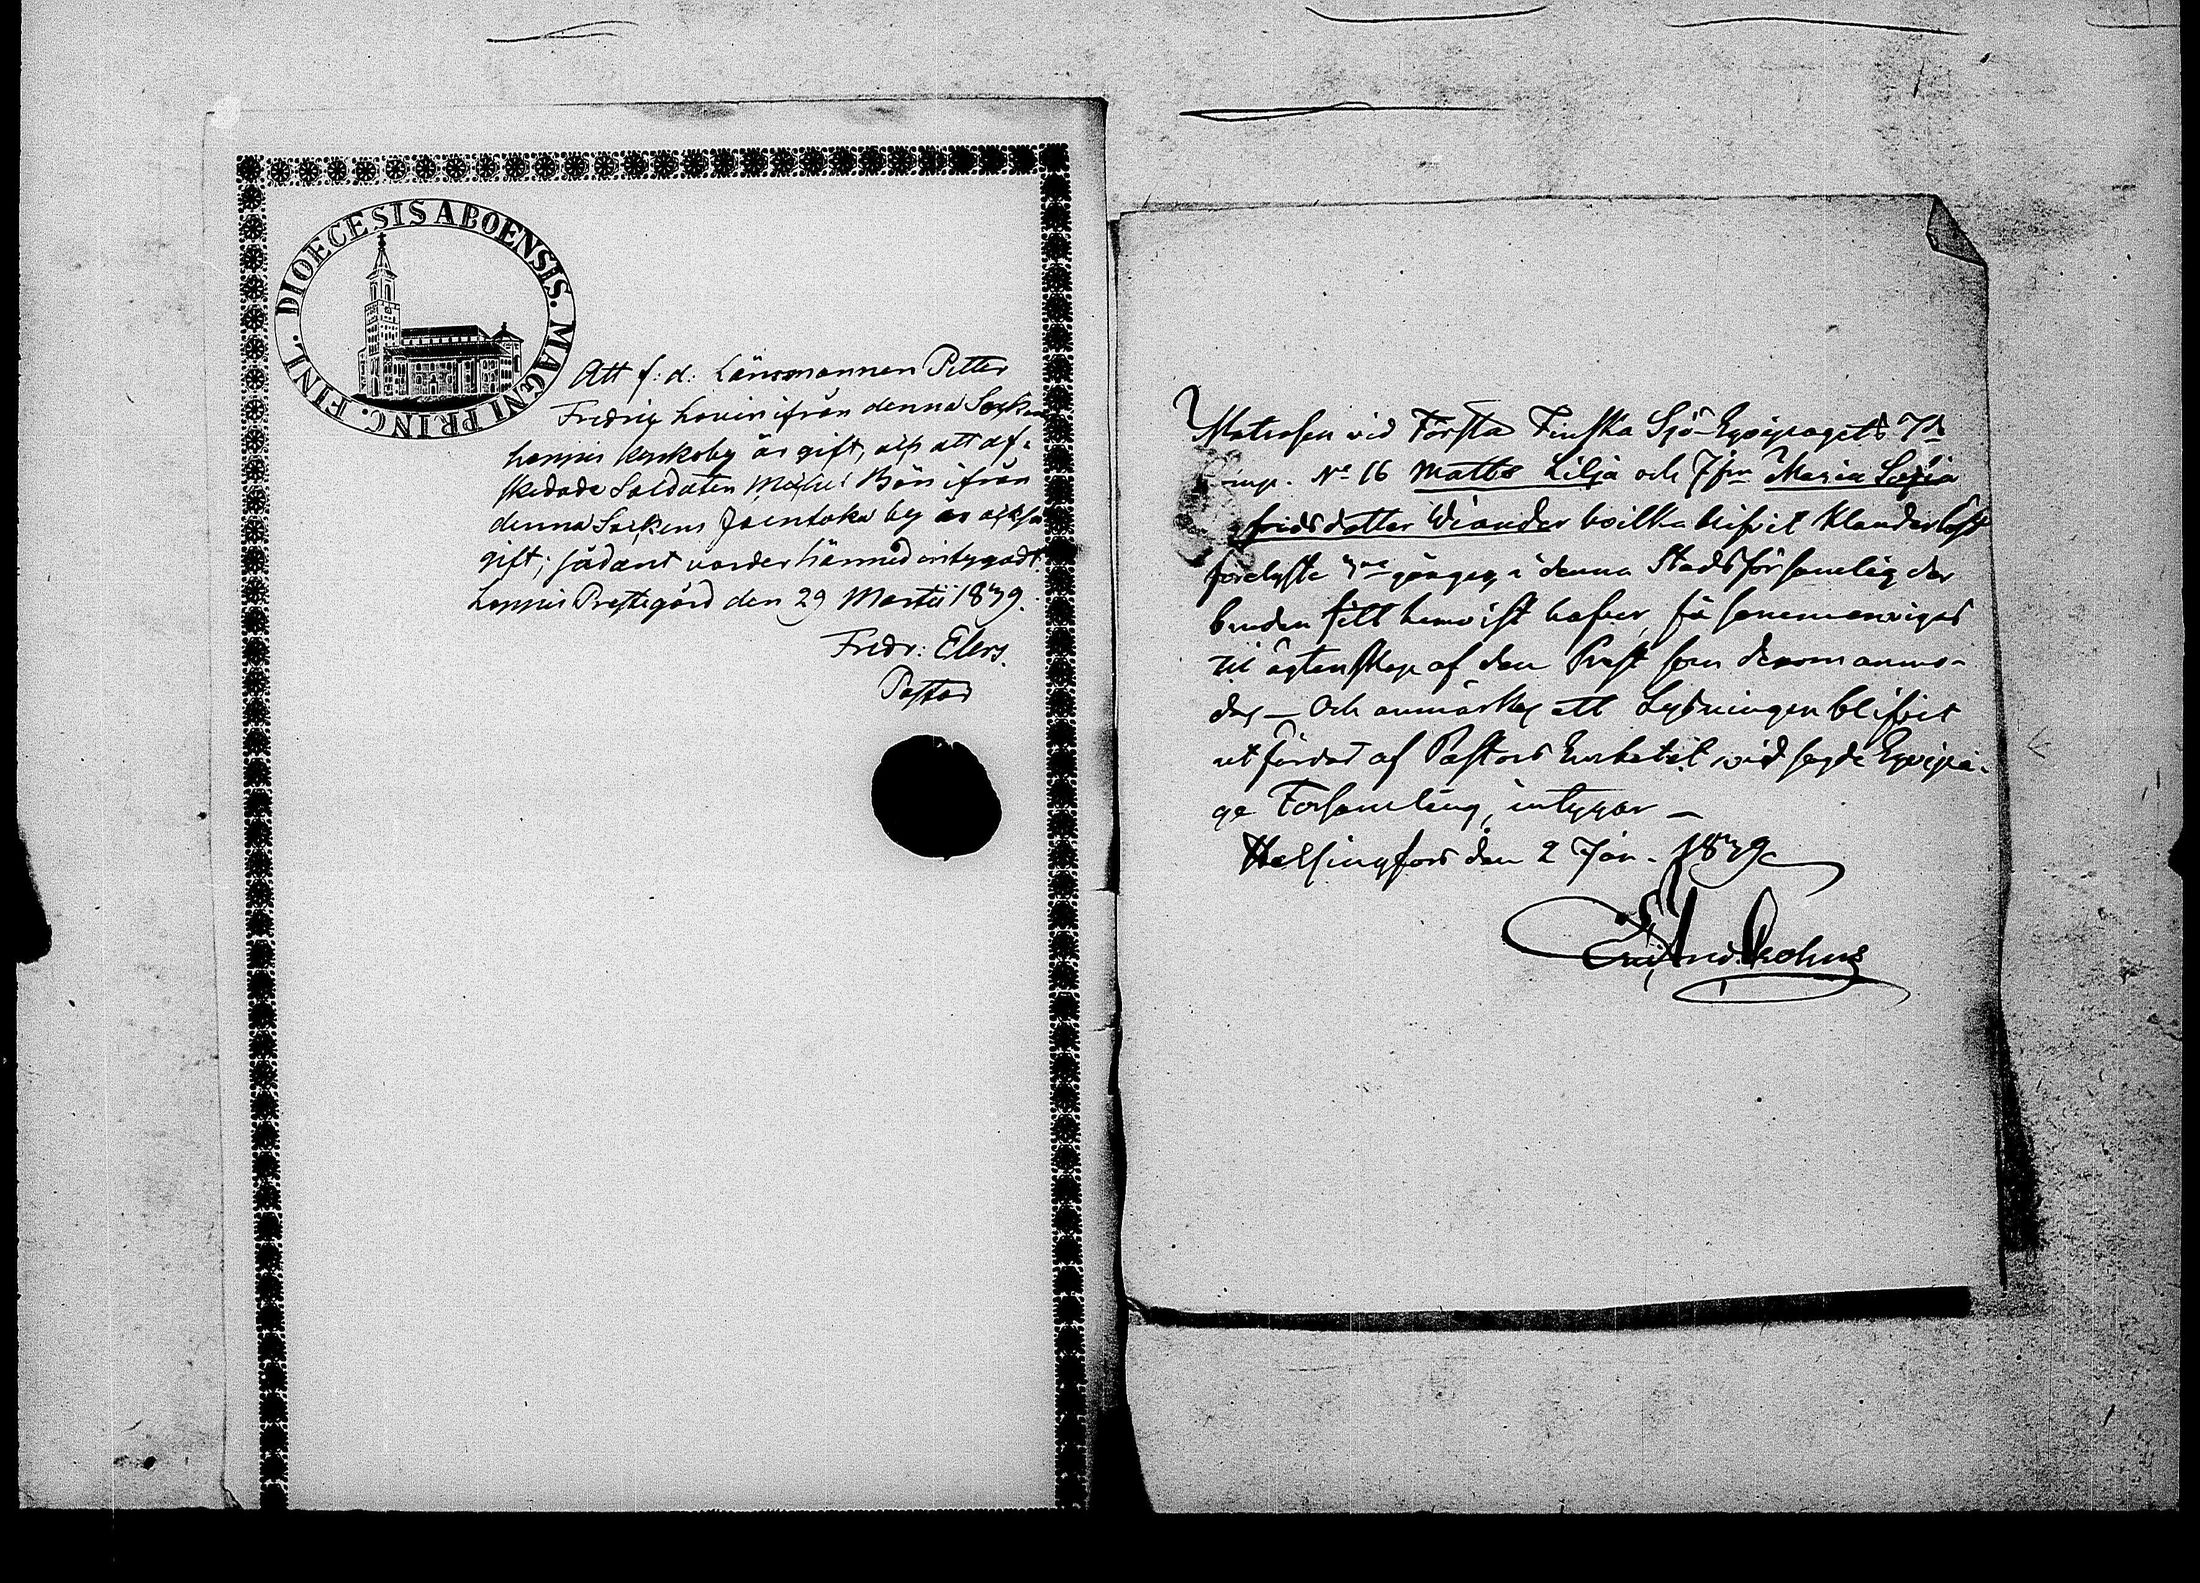 DIOECESIS ABOENSIS. MAGNI PRINC. FINL.
Att f: d: Länsmannen Petter
Fredric Lovin ifrån denna Sockens
Loppis Kaskoby är gift, och att af-
skedade Soldaten Michel Bön ifrån
denna Sockens Joentaka by är också
gift; sådant varder härmed intygadt.
Loppis Prestegård den 29 Martii 1839.
Fredr: Elers.
Pastor
Matrosen vid Första Finska Sjö-Eqvipagets 7de
Comp. No 16 Matts Lilja och Jfrn Maria Sofia
fridsdotter Wiander hvilka blifvit klanderlöst
förelyste 3ne gånger i denna Stadsförsamling der
bruden sitt hemvist hafver, få sammanvigas
til ägtenskap af den Prest som derom anmo-
das — Och anmärkes att Lysningen blifvit
utfärdad af Pastors Embetet vid sagde Eqvipa-
ge Församling, intygar —
Helsingfors den 2 Jan. 1839